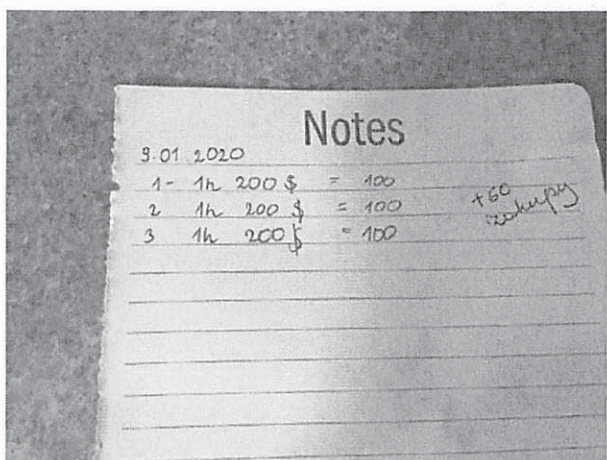 Notes
9.01 2020
1- 1h 200 $ = 100
2 1h 200 $ = 100
3 1h 200 $ = 100
+60
zakupy